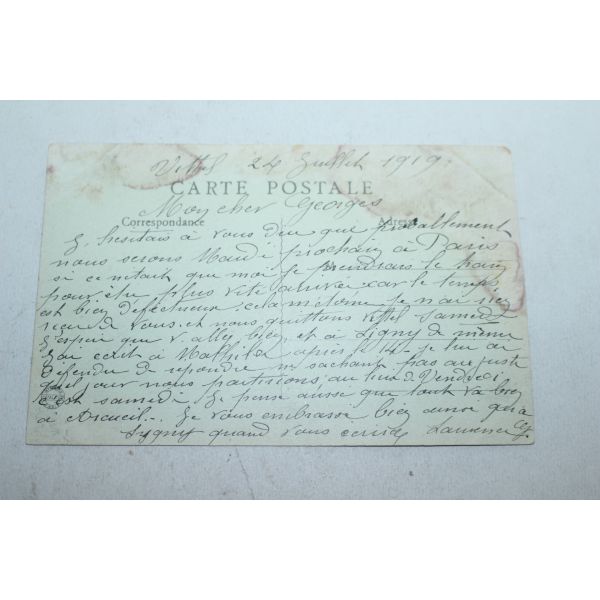 Vittel 24 Juillet 1919
CARTE POSTALE
Mon cher Georges
Correspondance Adresse
J. hesitais à vous dire que probablement
nous serons Mardi prochain à Paris
si ce n'etait que moi je prendrais le train
pour être plus vite arrivée car le temps
est bien défectueux cela m'étonne je n'ai rien
reçu de vous et nous quittons Vittel samedi
J'espère que v. allez bien et à Ligny de même
J'ai ecrit à Mathilde après le 14 je lui ai
défendu de repondre ne sachant pas au juste
quel jour nous partisions au lieu de Vendredi
c'est samedi Je pense aussi que tout va bien
à Arcueil. Je vous embrasse bien ainsi qu'à
Ligny quand vous écrirez Laurence